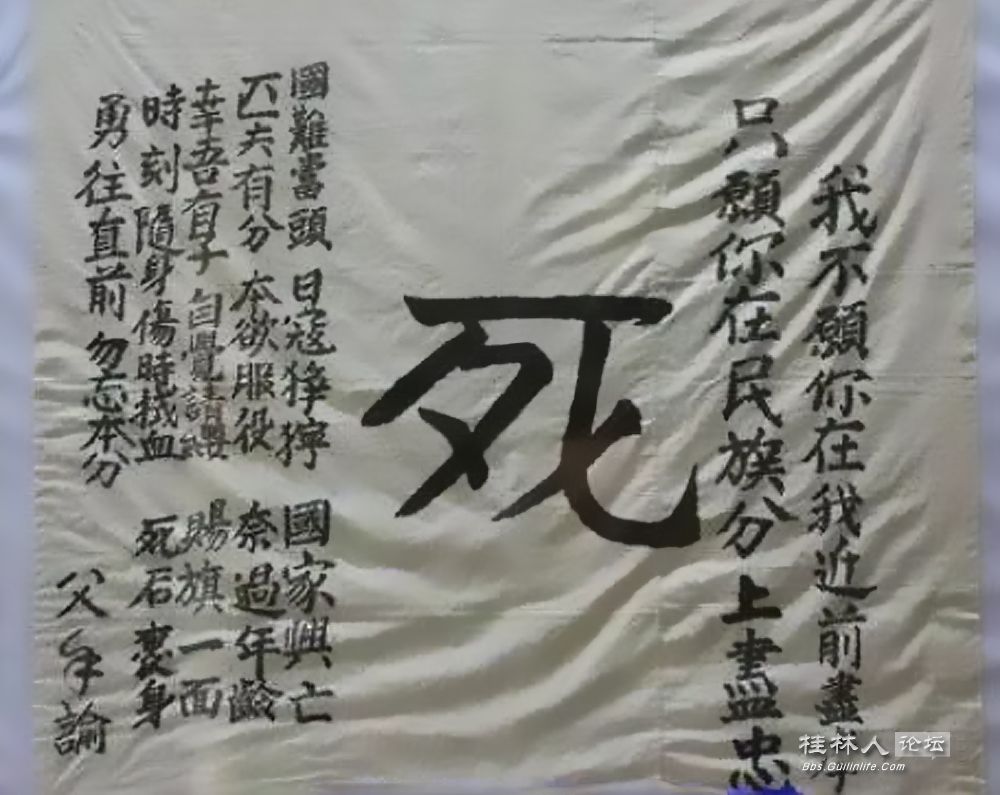 我不願你在我近前盡孝
只願你在民族分上盡忠
死
國難當頭 日寇猙獰 國家興亡
匹夫有分 本欲服役 奈過年齡
幸吾有子 自覺請纓 賜旗一面
時刻隨身 傷時拭血 死后裹身
勇往直前 勿忘本分
父手諭
桂林人论坛
Bbs.Guilinlife.Com